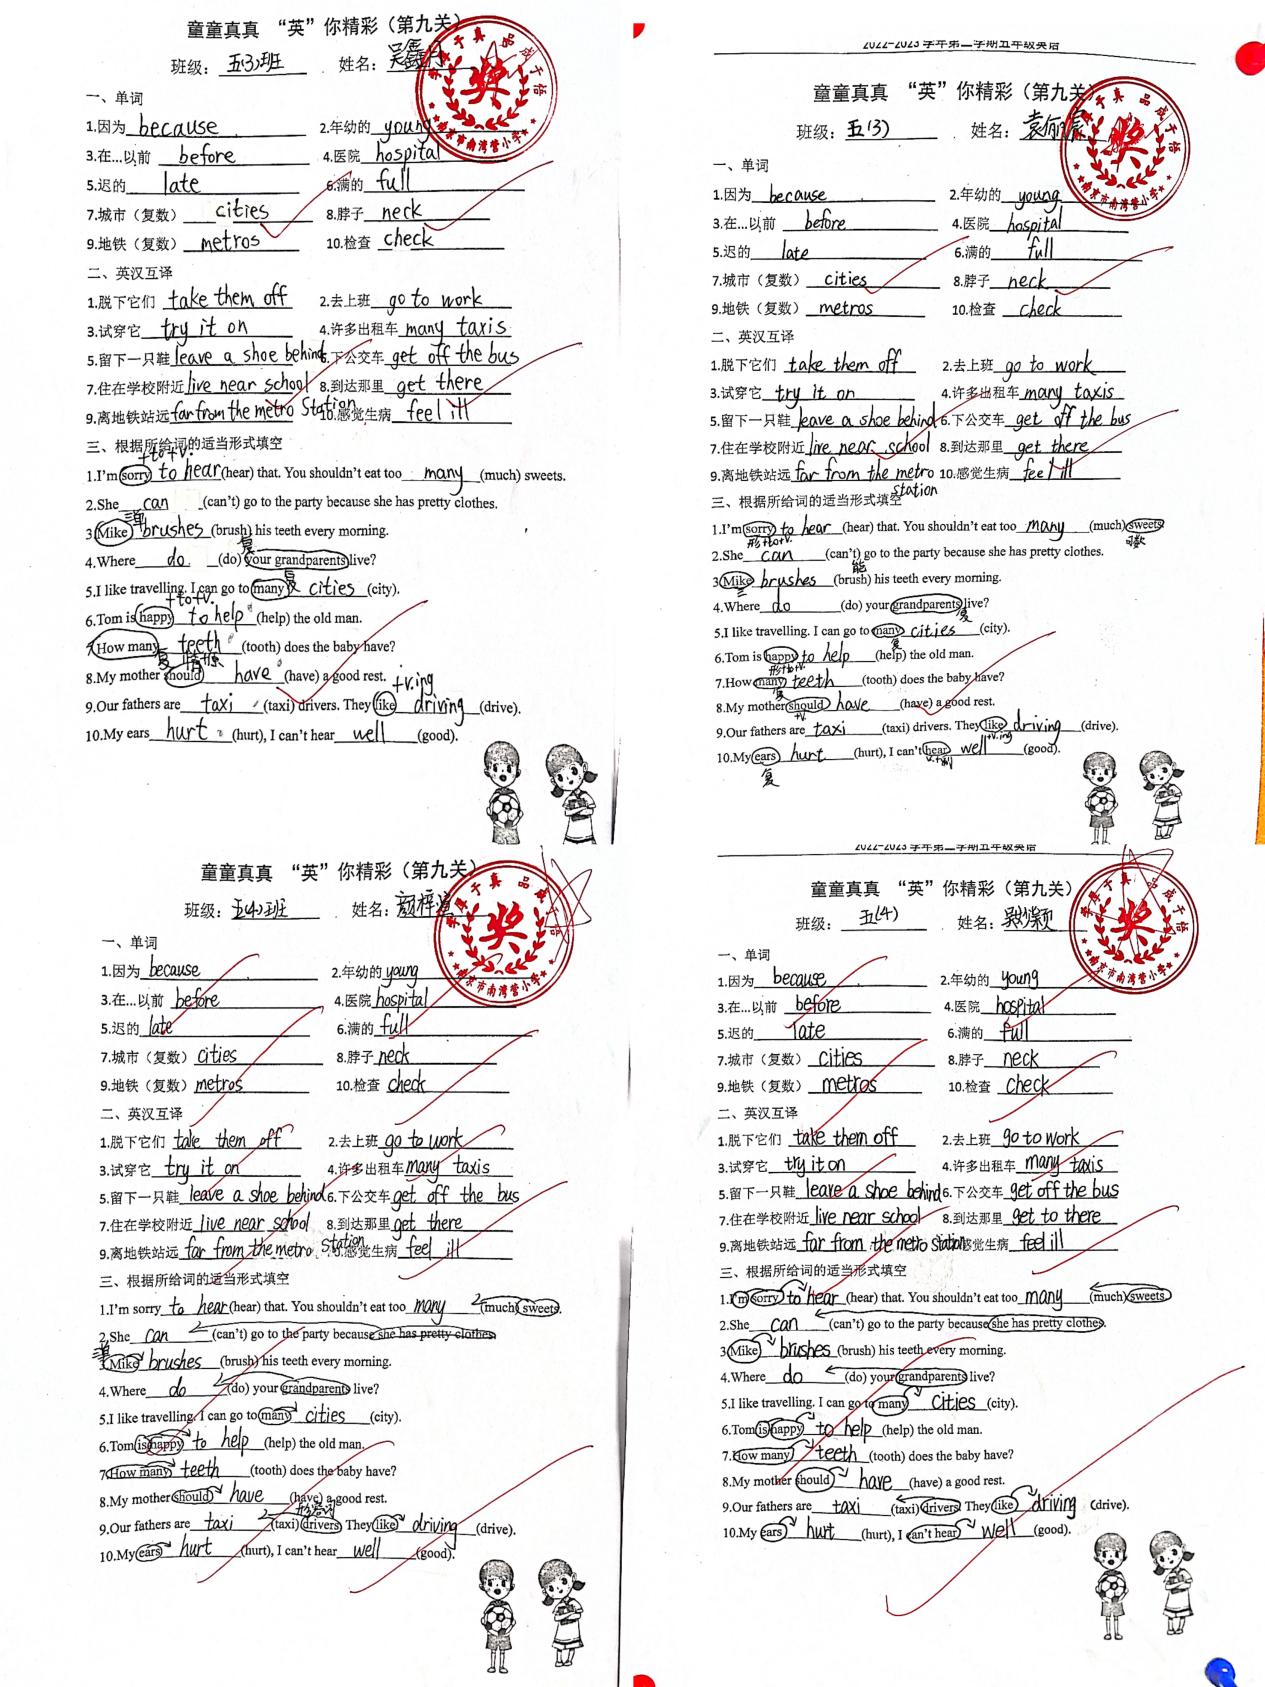 童童真真 “英”你精彩（第九关）
班级：五(3)班 姓名：吴鑫月
一、单词
1.因为 because 2.年幼的 young
3.在...以前 before 4.医院 hospital
5.迟的 late 6.满的 full
7.城市（复数） cities 8.脖子 neck
9.地铁（复数） metros 10.检查 check
二、英汉互译
1.脱下它们 take them off 2.去上班 go to work
3.试穿它 try it on 4.许多出租车 many taxis
5.留下一只鞋 leave a shoe behind 6.下公交车 get off the bus
7.住在学校附近 live near school 8.到达那里 get there
9.离地铁站远 far from the metro Station 10.感觉生病 feel ill
三、根据所给词的适当形式填空
+to+v.
1.I'm sorry to hear (hear) that. You shouldn't eat too many (much) sweets.
2.She can (can't) go to the party because she has pretty clothes.
三单
3.Mike brushes (brush) his teeth every morning.
复
4.Where do (do) your grandparents live?
复
5.I like travelling. I can go to many cities (city).
+to+v.
6.Tom is happy to help (help) the old man.
7.How many teeth (tooth) does the baby have?
复 +动原
8.My mother should have (have) a good rest.
+v.ing
9.Our fathers are taxi (taxi) drivers. They like driving (drive).
10.My ears hurt (hurt), I can't hear well (good).
学厚于真 品成于悟
奖
南京市南湾营小学
2022-2023 学年第二学期五年级英语
童童真真 “英”你精彩（第九关）
班级：五(3) 姓名：
一、单词
1.因为 because 2.年幼的 young
3.在...以前 before 4.医院 hospital
5.迟的 late 6.满的 full
7.城市（复数） cities 8.脖子 neck
9.地铁（复数） metros 10.检查 check
二、英汉互译
1.脱下它们 take them off 2.去上班 go to work
3.试穿它 try it on 4.许多出租车 many taxis
5.留下一只鞋 leave a shoe behind 6.下公交车 get off the bus
7.住在学校附近 live near school 8.到达那里 get there
9.离地铁站远 far from the metro station 10.感觉生病 feel ill
三、根据所给词的适当形式填空
1.I'm sorry to hear (hear) that. You shouldn't eat too many (much) sweets.
形+to+v. 可数
2.She can (can't) go to the party because she has pretty clothes.
能
3.Mike brushes (brush) his teeth every morning.
三
4.Where do (do) your grandparents live?
复
5.I like travelling. I can go to many cities (city).
复
6.Tom is happy to help (help) the old man.
形+to+v.
7.How many teeth (tooth) does the baby have?
复
8.My mother should have (have) a good rest.
+v
9.Our fathers are taxi (taxi) drivers. They like driving (drive).
+v.ing
10.My ears hurt (hurt), I can't hear well (good).
复 v.+副
学厚于真 品成于悟
奖
南京市南湾营小学
童童真真 “英”你精彩（第九关）
班级：五(4)班 姓名：颜梓萱
一、单词
1.因为 because 2.年幼的 young
3.在...以前 before 4.医院 hospital
5.迟的 late 6.满的 full
7.城市（复数） cities 8.脖子 neck
9.地铁（复数） metros 10.检查 check
二、英汉互译
1.脱下它们 take them off 2.去上班 go to work
3.试穿它 try it on 4.许多出租车 many taxis
5.留下一只鞋 leave a shoe behind 6.下公交车 get off the bus
7.住在学校附近 live near school 8.到达那里 get there
9.离地铁站远 far from the metro station 感觉生病 feel ill
三、根据所给词的适当形式填空
1.I'm sorry to hear (hear) that. You shouldn't eat too many (much) sweets.
2.She can (can't) go to the party because she has pretty clothes.
三单
3.Mike brushes (brush) his teeth every morning.
4.Where do (do) your grandparents live?
5.I like travelling. I can go to many cities (city).
6.Tom is happy to help (help) the old man.
7.How many teeth (tooth) does the baby have?
8.My mother should have (have) a good rest.
9.Our fathers are taxi (taxi) drivers. They like driving (drive).
10.My ears hurt (hurt), I can't hear well (good).
学厚于真 品成于悟
奖
南京市南湾营小学
2022-2023 学年第二学期五年级英语
童童真真 “英”你精彩（第九关）
班级：五(4) 姓名：
一、单词
1.因为 because 2.年幼的 young
3.在...以前 before 4.医院 hospital
5.迟的 late 6.满的 full
7.城市（复数） cities 8.脖子 neck
9.地铁（复数） metros 10.检查 check
二、英汉互译
1.脱下它们 take them off 2.去上班 go to work
3.试穿它 try it on 4.许多出租车 many taxis
5.留下一只鞋 leave a shoe behind 6.下公交车 get off the bus
7.住在学校附近 live near school 8.到达那里 get to there
9.离地铁站远 far from the metro station 感觉生病 feel ill
三、根据所给词的适当形式填空
1.I'm sorry to hear (hear) that. You shouldn't eat too many (much) sweets.
2.She can (can't) go to the party because she has pretty clothes.
3.Mike brushes (brush) his teeth every morning.
4.Where do (do) your grandparents live?
5.I like travelling. I can go to many cities (city).
6.Tom is happy to help (help) the old man.
7.How many teeth (tooth) does the baby have?
8.My mother should have (have) a good rest.
9.Our fathers are taxi (taxi) drivers. They like driving (drive).
10.My ears hurt (hurt), I can't hear well (good).
学厚于真 品成于悟
奖
南京市南湾营小学